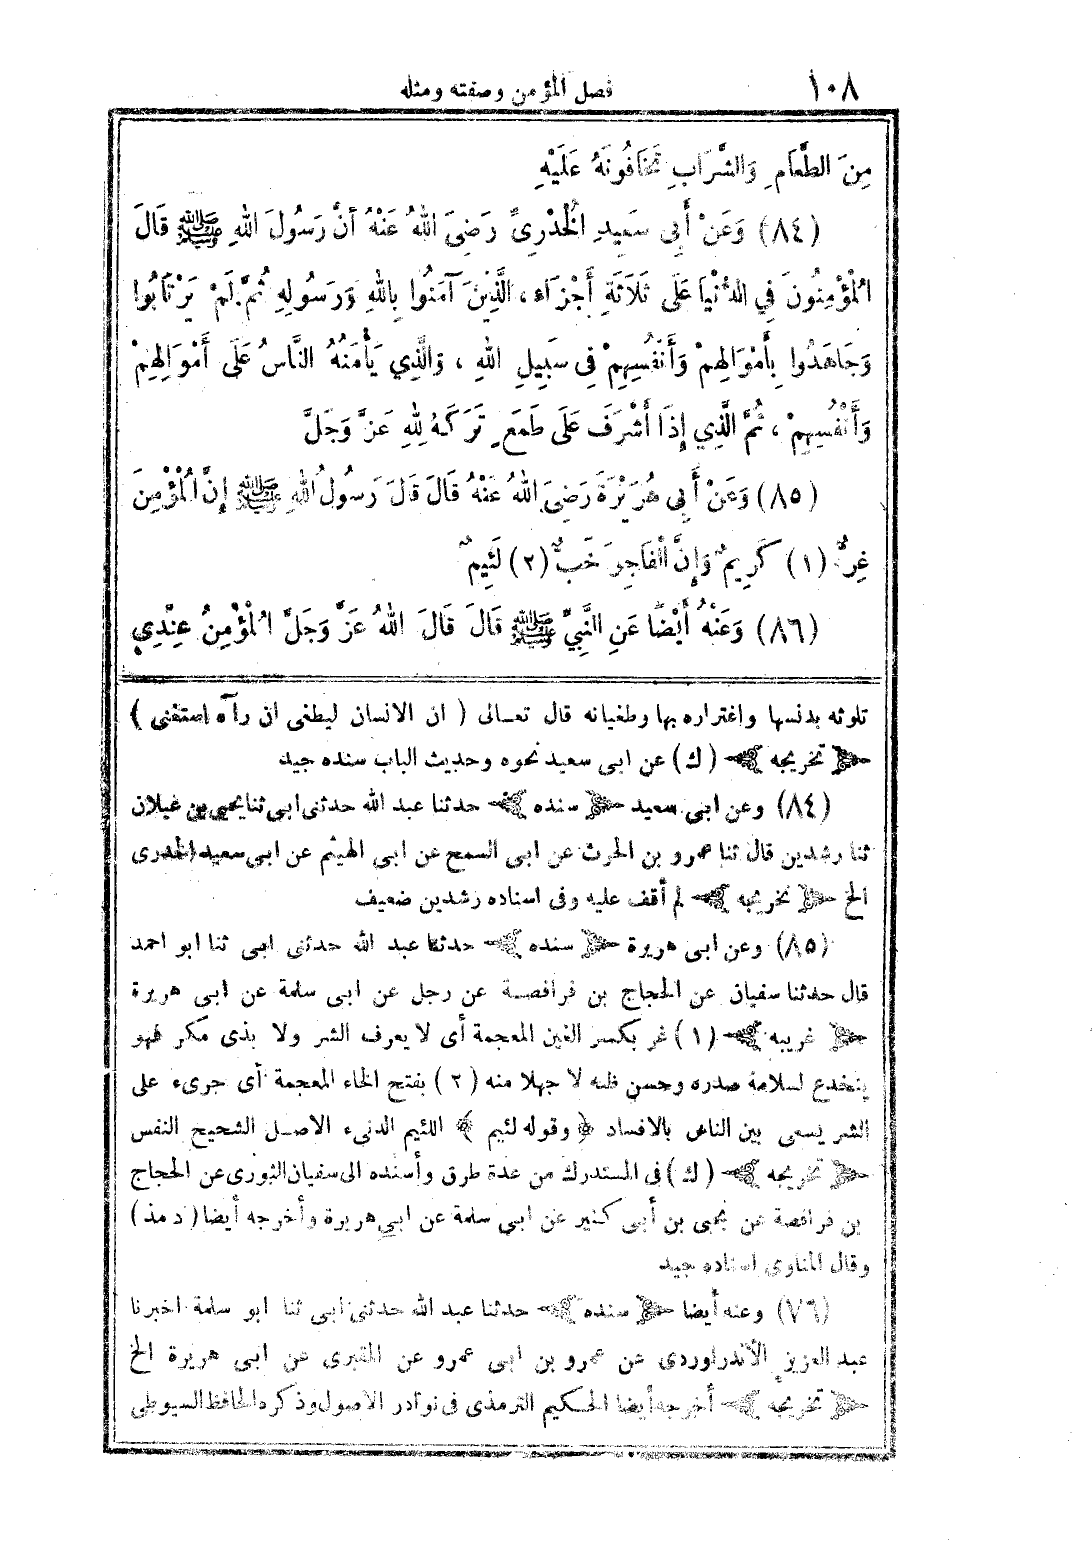 ١٠٨ فصل المؤمن وصفته ومثله
مِنَ الطَّعَامِ وَالشَّرَابِ تَخَافُونَهُ عَلَيْهِ
(٨٤) وَعَنْ أَبِي سَعِيدٍ الْخُدْرِىِّ رَضِىَ اللهُ عَنْهُ أَنَّ رَسُولَ اللهِ ﷺ قَالَ
الْمُؤْمِنُونَ فِي الدُّنْيَا عَلَى ثَلَاثَةِ أَجْزَاءٍ، الَّذِينَ آمَنُوا بِاللهِ وَرَسُولِهِ ثُمَّ لَمْ يَرْتَابُوا
وَجَاهَدُوا بِأَمْوَالِهِمْ وَأَنْفُسِهِمْ فِي سَبِيلِ اللهِ ، وَالَّذِي يَأْمَنُهُ النَّاسُ عَلَى أَمْوَالِهِمْ
وَأَنْفُسِهِمْ ، ثُمَّ الَّذِي إِذَا أَشْرَفَ عَلَى طَمَعٍ تَرَكَهُ لِلهِ عَزَّ وَجَلَّ
(٨٥) وَعَنْ أَبِي هُرَيْرَةَ رَضِىَ اللهُ عَنْهُ قَالَ قَالَ رَسُولُ اللهِ ﷺ إِنَّ الْمُؤْمِنَ
غِرٌّ (١) كَرِيمٌ وَإِنَّ الْفَاجِرَ خَبٌّ (٢) لَئِيمٌ
(٨٦) وَعَنْهُ أَيْضًا عَنِ النَّبِيِّ ﷺ قَالَ قَالَ اللهُ عَزَّ وَجَلَّ الْمُؤْمِنُ عِنْدِي
تلوثه بدنسها واغتراره بها وطغيانه قال تعالى ( ان الانسان ليطغى ان رآه استغنى )
﴿ تخريجه ﴾ (ك) عن ابى سعيد نحوه وحديث الباب سنده جيد
(٨٤) وعن ابى سعيد ﴿ سنده ﴾ حدثنا عبد الله حدثنى ابى ثنا يحيى بن غيلان
ثنا رشدين قال ثنا عمرو بن الحرث عن ابى السمح عن ابى الهيثم عن ابى سعيد الخدرى
الخ ﴿ تخريجه ﴾ لم أقف عليه وفى اسناده رشدين ضعيف
(٨٥) وعن ابى هريرة ﴿ سنده ﴾ حدثنا عبد الله حدثنى ابى ثنا ابو احمد
قال حدثنا سفيان عن الحجاج بن فرافصة عن رجل عن ابى سلمة عن ابى هريرة
﴿ غريبه ﴾ (١) غر بكسر الغين المعجمة أى لا يعرف الشر ولا بذى مكر فهو
ينخدع لسلامة صدره وحسن ظنه لا جهلا منه (٢) بفتح الخاء المعجمة أى جرىء على
الشر يسعى بين الناس بالافساد ﴿ وقوله لئيم ﴾ اللئيم الدنىء الاصل الشحيح النفس
﴿ تخريجه ﴾ (ك) فى المستدرك من عدة طرق وأسنده الى سفيان الثورى عن الحجاج
بن فرافصة عن يحيى بن أبى كثير عن ابى سلمة عن ابى هريرة وأخرجه أيضا ( د مذ )
وقال المناوى اسناده جيد
(٧٦) وعنه أيضا ﴿ سنده ﴾ حدثنا عبد الله حدثنى ابى ثنا ابو سلمة اخبرنا
عبد العزيز الأندراوردى عن عمرو بن ابى عمرو عن المقبرى عن ابى هريرة الخ
﴿ تخريجه ﴾ أخرجه أيضا الحكيم الترمذى فى نوادر الاصول وذكره الحافظ السيوطى